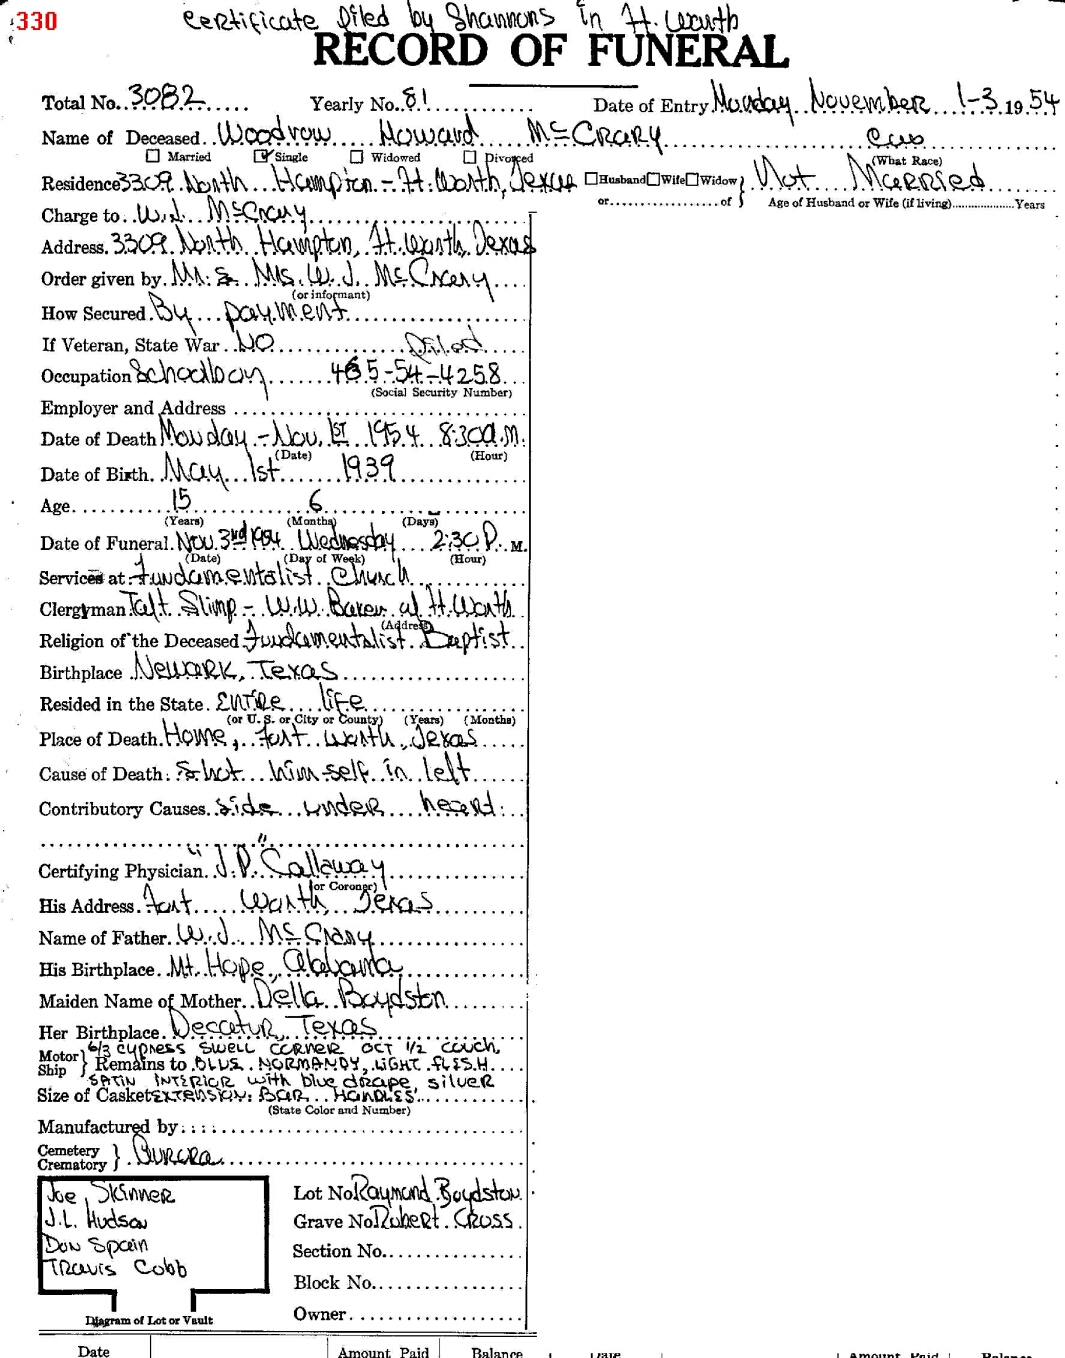 330
certificate filed by Shannons in Ft. Worth
RECORD OF FUNERAL
Total No. 3082 Yearly No. 81 Date of Entry Monday November 1-3 1954
Name of Deceased Woodrow Howard McCrary
Married Single Widowed Divorced (What Race)
Residence 3309 North Hampton - Ft. Worth, Texas Husband Wife Widow } Not Married
or of Age of Husband or Wife (if living) Years
Charge to W.J. McCrary
Address 3309 North Hampton, Ft. Worth, Texas
Order given by Mr. & Mrs. W. J. McCrary
(or informant)
How Secured By payment
If Veteran, State War NO filed
Occupation Schoolboy 465-54-4258
(Social Security Number)
Employer and Address
Date of Death Monday - Nov. 1st 1954 8:30 a.m.
(Date) (Hour)
Date of Birth May 1st 1939
Age 15 6
(Years) (Months) (Days)
Date of Funeral Nov. 3rd 1954 Wednesday 2:30 P. M.
(Date) (Day of Week) (Hour)
Services at Fundamentalist Church
Clergyman Taft Slimp - W.W. Baker of Ft. Worth
(Address)
Religion of the Deceased Fundamentalist Baptist
Birthplace Newark, Texas
Resided in the State Entire life
(or U. S. or City or County) (Years) (Months)
Place of Death Home, Fort Worth, Texas
Cause of Death: Shot him-self in left
Contributory Causes side under heart
Certifying Physician J.P. Callaway
(or Coroner)
His Address Fort Worth, Texas
Name of Father W.J. McCrary
His Birthplace Mt. Hope, Alabama
Maiden Name of Mother Della Boydston
Her Birthplace Decatur, Texas
6/3 cypress swell corner oct 1/2 couch,
Motor Ship } Remains to BLUE NORMANDY, LIGHT FLESH
SATIN INTERIOR with blue drape, silver
Size of Casket EXTENSION: BAR HANDLES
(State Color and Number)
Manufactured by
Cemetery Crematory }
Joe Skinner
J.L. Hudson
Don Spain
Travis Cobb
Lot No Raymond Boydston
Grave No Robert Cross
Section No.
Block No.
Owner
Diagram of Lot or Vault
Date Amount Paid Balance Date Amount Paid Balance